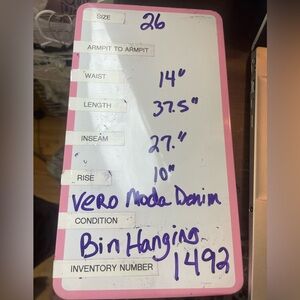 SIZE 26
ARMPIT TO ARMPIT
WAIST 14"
LENGTH 37.5"
INSEAM 27."
RISE 10"
Vero Moda Denim
CONDITION
Bin Hanging
INVENTORY NUMBER 1492